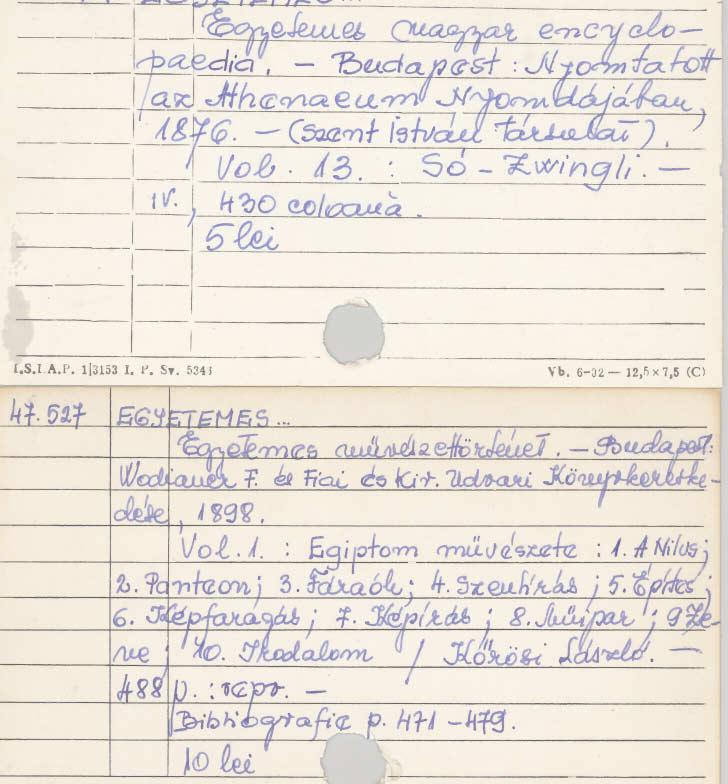 EGYETEMES...
Egyetemes magyar encyclo-
paedia. - Budapest : Nyomtatott
az Athenaeum Nyomdájában,
1876. - (Szent István társulat).
Vol. 13. : Só - Zwingli. -
IV., 430 coloană.
5 lei
I.S.I.A.P. 1|3153 I. P. Sv. 5343
Vb. 6-32 — 12,5×7,5 (C)
47.527 EGYETEMES...
Egyetemes művészettörténet. - Budapest:
Wodianer F. és Fiai és Kir. Udvari Könyvkereske-
dése, 1898.
Vol. 1. : Egiptom művészete : 1. A Nilus;
2. Panteon; 3. Fáraók; 4. Szentírás; 5. Építés;
6. Képfaragás; 7. Képírás; 8. Műipar; 9 Ze-
ne; 10. Irodalom / Kőrösi László. -
488 p. : repr. -
Bibliografie p. 471-479.
10 lei